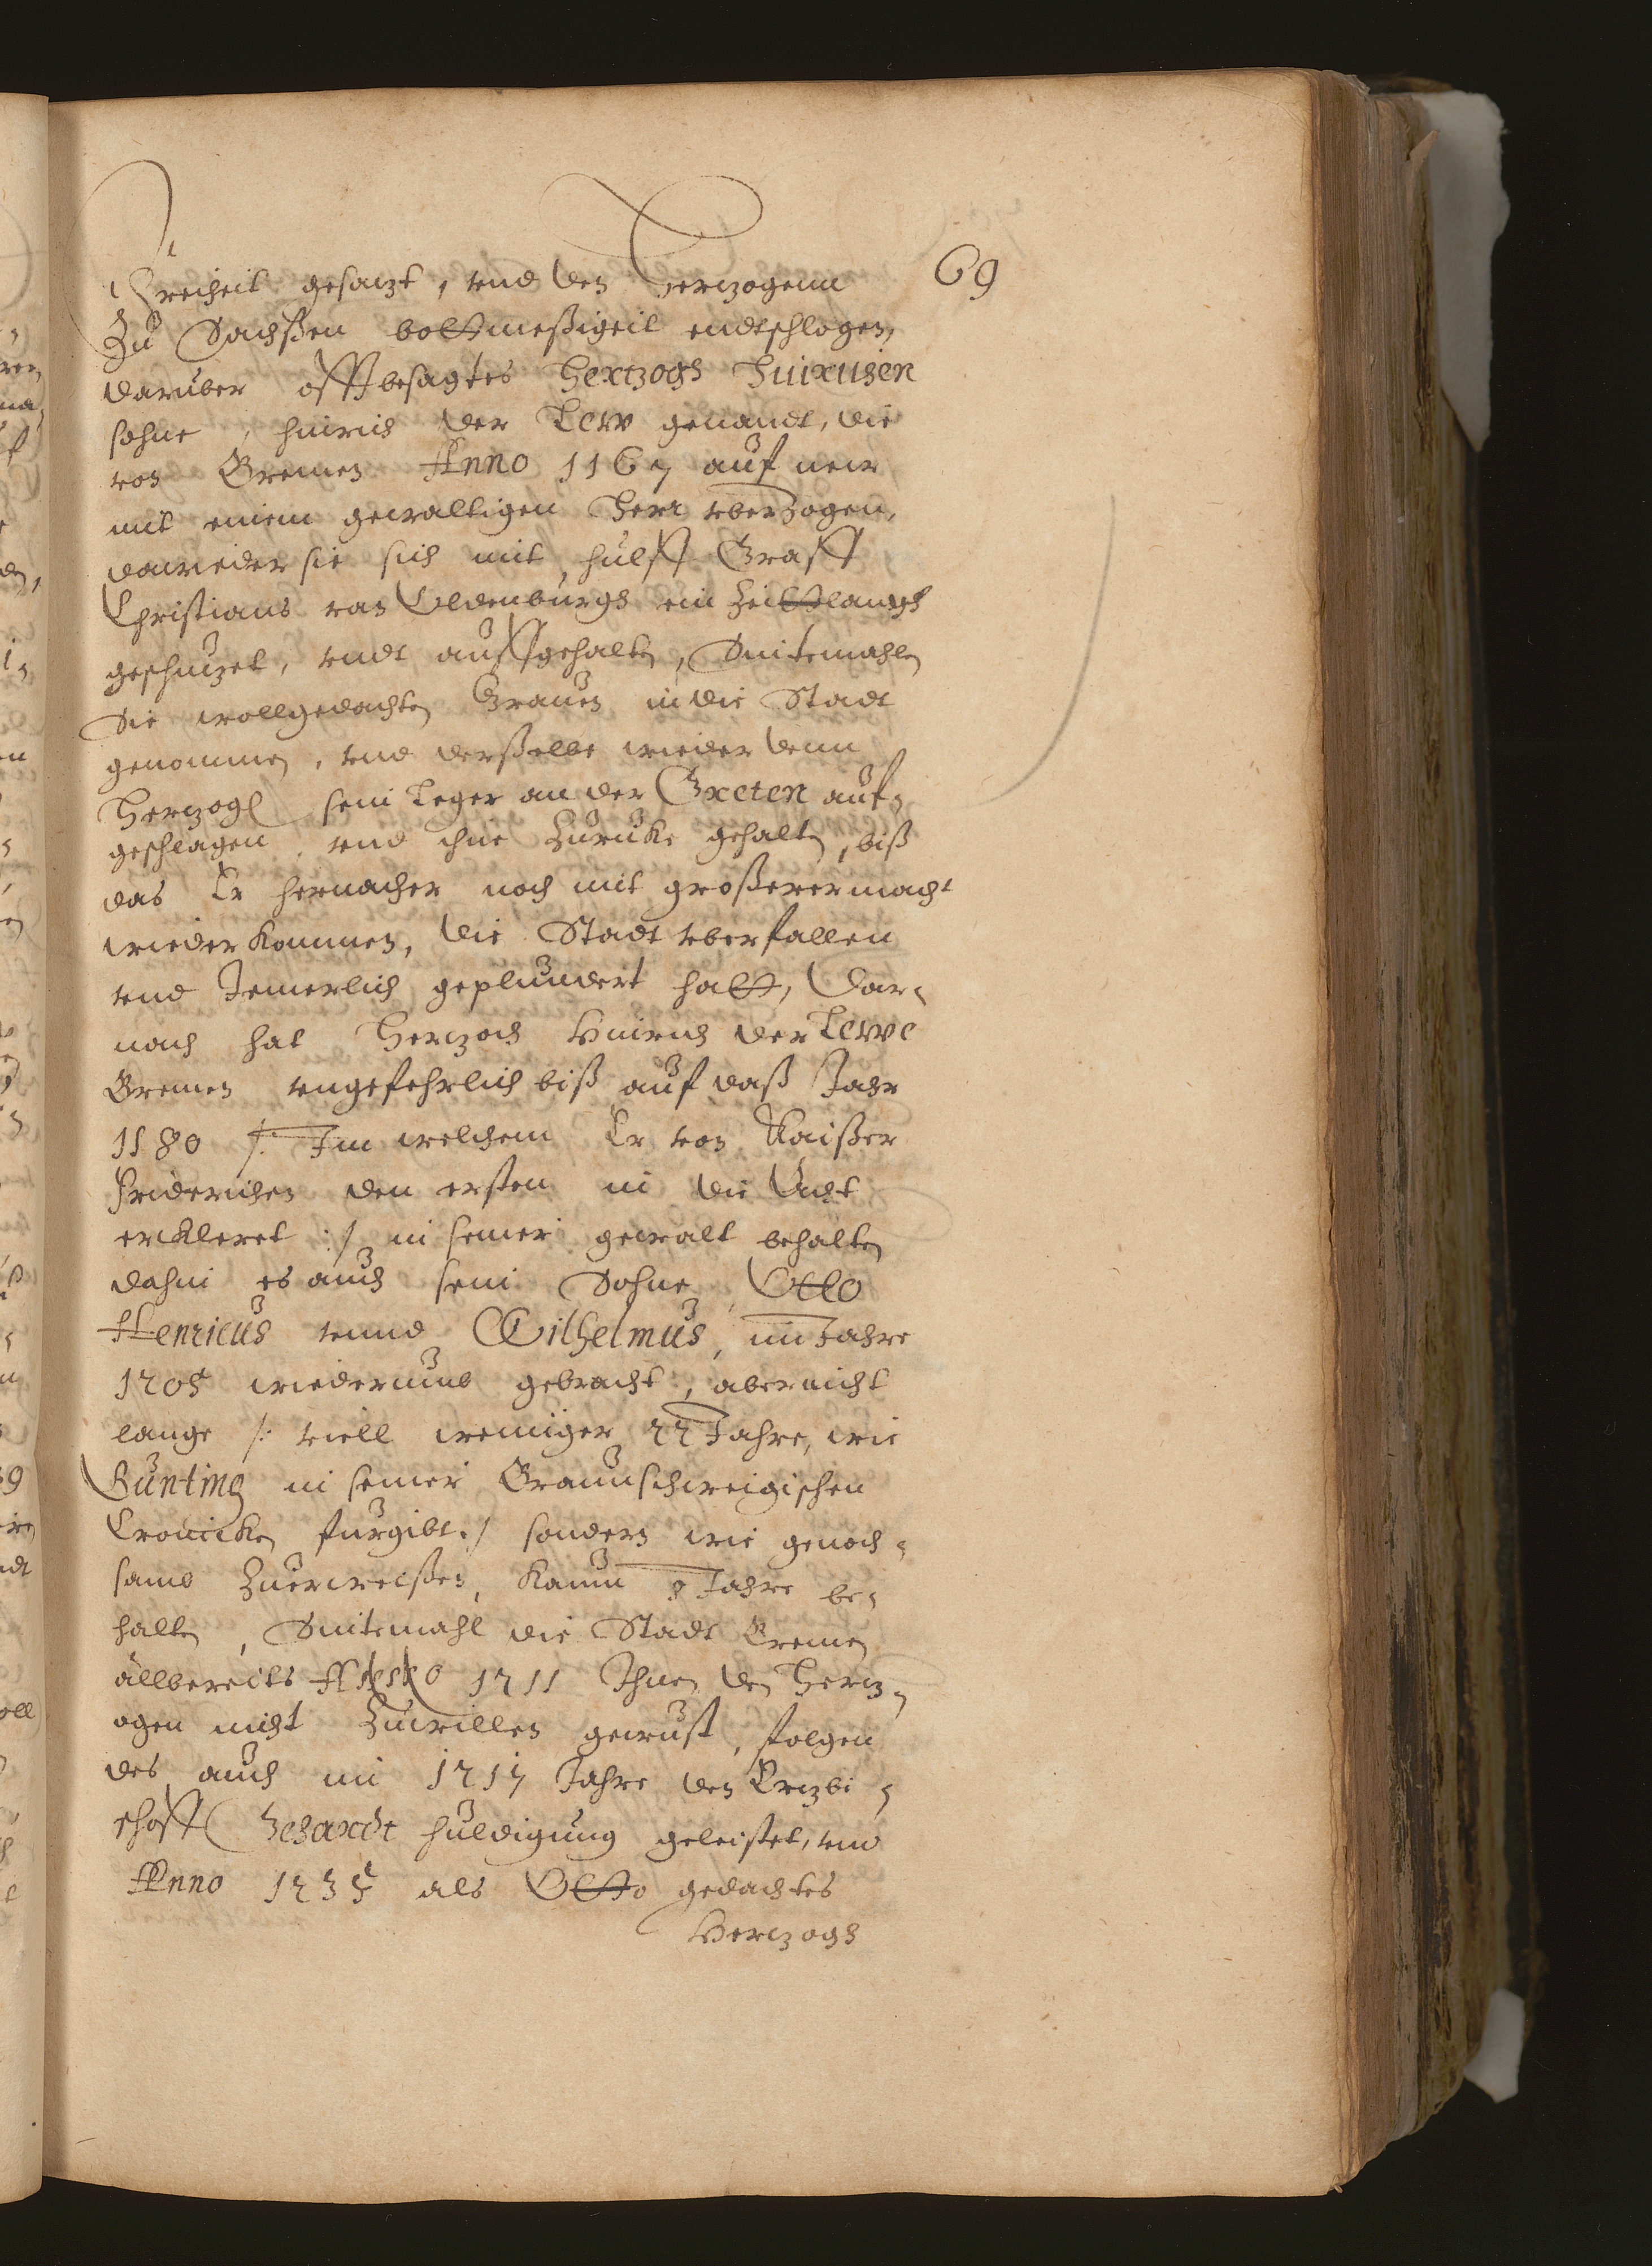 69
Freiheit gesatzt, vnd den Hertzogenn
Zu Sachßen bottmeßigeit endtschlogen,
daruber offtbesagtes Hertzogh Hinrichen
sohne, hinrich der Lew genandt, die
von Bremen Anno 1167 auf new
mit einem gewaltigen Herr vberzogen,
dawieder sie sich mit hulff Graff
Christians von Oldenburgh ein Zeittlangh
geschutzet, vndt auffgehalten, Sintemahlen
Sie wollgedachten Grauen in die Stadt
genommen, vnd derßelbe wieder denn
Hertzogh sein Leger an der Greten auf-
geschlagen, vnd ihne Zurucke gehalten, biß
das Er hernacher noch mit großerer macht
wieder kommen, die Stadt vberfallen
vnd Jemerlich geplundert hatt, Dar-
nach hat Hertzoch Hinrich der Lewe
Bremen vngefehrlich biß auf daß Jahr
1180 /: Im welchem Er von Kaißer
Friderichen den ersten in die Acht
erkleret :/ in seiner gewalt behalten
dahin es auch sein Sohne, Otto
Henricus vnnd Wilhelmus, im Jahre
1205 wiederumb gebracht, aber nicht
lange /: viell weiniger 22 Jahre, wie
Bunting in seiner Braunschweigischen
Cronicken furgibt :/ sondern wie genoch-
samb Zuerweißen, kaum 8 Jahre be-
halten, Sintemahl die Stadt Bremen
allbereits Anno 1211 Ihnen den Hertz-
ogen nicht Zuwillen gewust, folgen
des auch im 1217 Jahre den Ertzbi-
schoff Gehardt huldigung geleistet, vnd
Anno 1235 als Otto gedachtes
Hertzogh